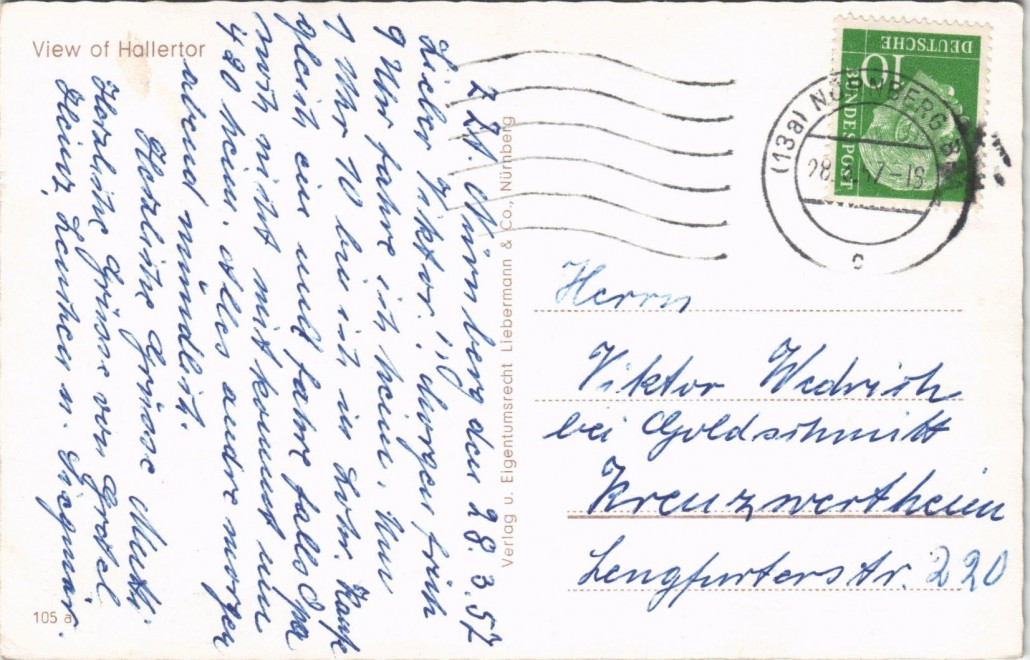 View of Hallertor
z.Zt. Nürnberg den 28.3.57
Lieber Viktor! Morgen früh
9 Uhr fahre ich heim. Um
1 Uhr 10 bin ich in Lohr. Kaufe
gleich ein und fahre falls Opa
noch nicht mitkommt um
420 heim. Alles andre morgen
abend mündlich.
Herzliche Grüsse Mutti.
Herzliche Grüsse von Gretel
Heinz, u. Siegmar.
105 a
Verlag u. Eigentumsrecht Liebermann & Co., Nürnberg
DEUTSCHE
BUNDESPOST
10
(13a) NÜRNBERG
c
Herrn
Viktor Wedrich
bei Goldschmitt
Kreuzwertheim
Lengfurterstr. 220